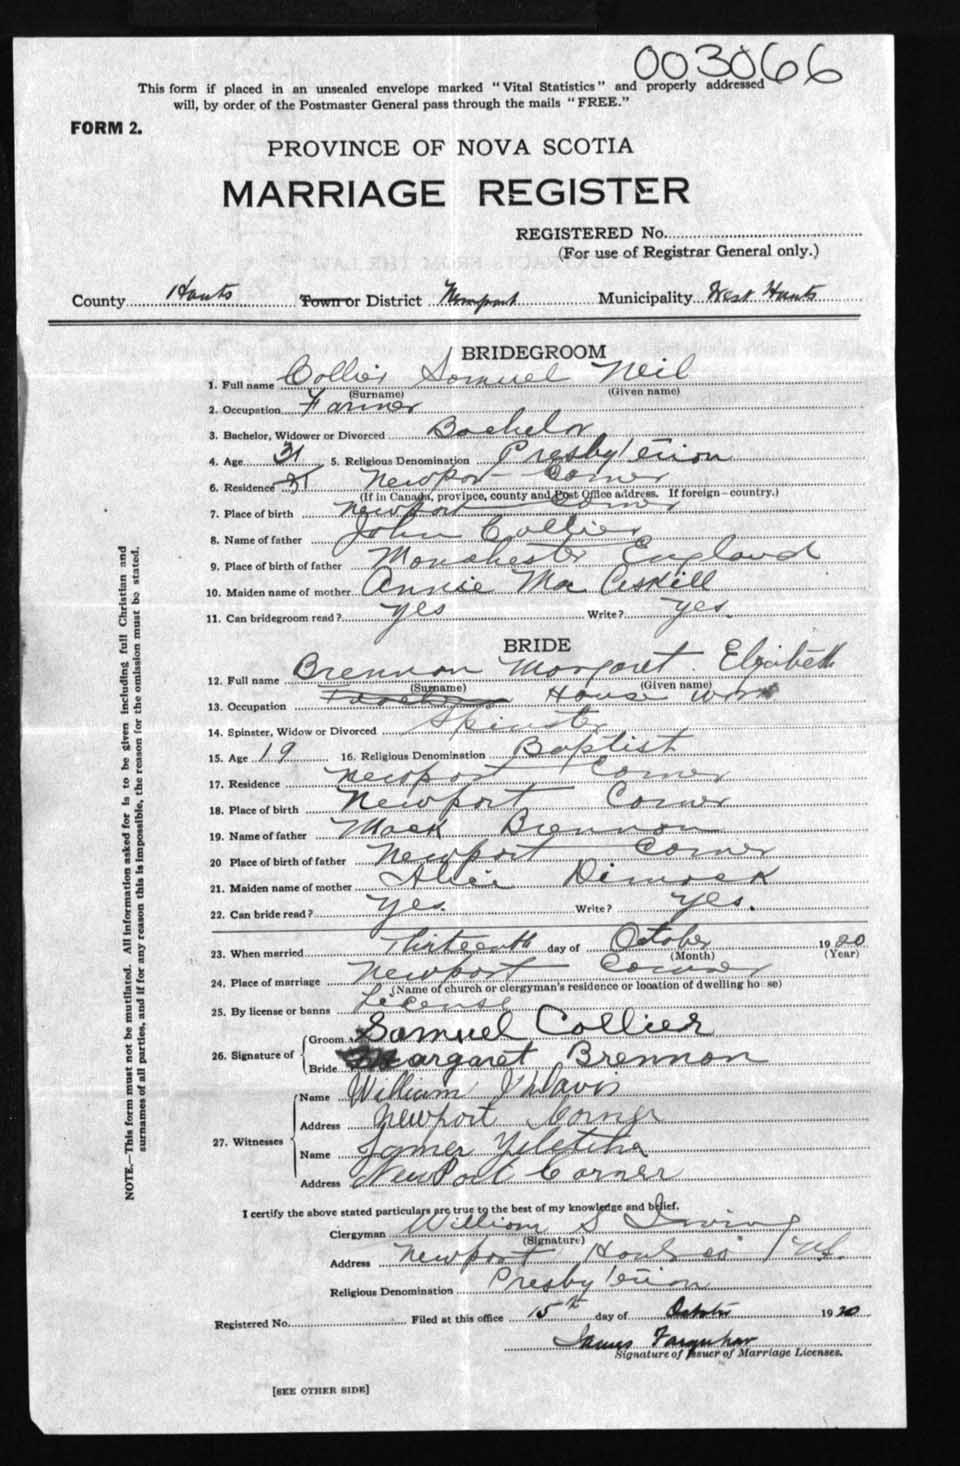 003066
This form if placed in an unsealed envelope marked "Vital Statistics" and properly addressed
will, by order of the Postmaster General pass through the mails "FREE."
FORM 2.
PROVINCE OF NOVA SCOTIA
MARRIAGE REGISTER
REGISTERED No.
(For use of Registrar General only.)
County Hants Town or District Newport Municipality West Hants
BRIDEGROOM
1. Full name Collier Samuel Neil
(Surname) (Given name)
2. Occupation Farmer
3. Bachelor, Widower or Divorced Bachelor
4. Age 31 5. Religious Denomination Presbyterion
6. Residence 31 Newport Corner
(If in Canada, province, county and Post Office address. If foreign-country.)
7. Place of birth Newport Corner
8. Name of father John Collier
9. Place of birth of father Manchester England
10. Maiden name of mother Annie Mac Askill
11. Can bridegroom read? yes Write? yes.
BRIDE
12. Full name Brennon Margaret Elizabeth
(Surname) (Given name)
13. Occupation House work
14. Spinster, Widow or Divorced Spinster
15. Age 19 16. Religious Denomination Baptist
17. Residence Newport Corner
18. Place of birth Newport Corner
19. Name of father Mack Brennon
20 Place of birth of father Newport Corner
21. Maiden name of mother Alice Dimock
22. Can bride read? yes. Write? yes.
23. When married Thirteenth day of October 1920
(Month) (Year)
24. Place of marriage Newport Corner
(Name of church or clergyman's residence or location of dwelling house)
25. By license or banns License
26. Signature of Groom Samuel Collier
Bride Margaret Brennon
27. Witnesses
Name William Davis
Address Newport Corner
Name James
Address NewPort Corner
I certify the above stated particulars are true to the best of my knowledge and belief.
Clergyman William S Irving
(Signature)
Address Newport Hants co NS.
Religious Denomination Presbyterion
Registered No. Filed at this office 15th day of October 1920
James Farquhar
Signature of Issuer of Marriage Licenses.
[SEE OTHER SIDE]
NOTE.—This form must not be mutilated. All information asked for is to be given including full Christian and
surnames of all parties, and if for any reason this is impossible, the reason for the omission must be stated.